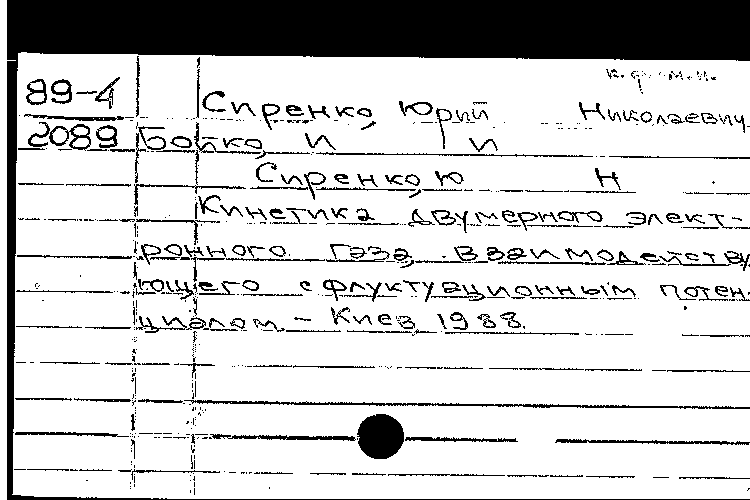 к. ф.-м. н.
89-4 Сиренко, Юрий Николаевич
2089 Бойко, И И
Сиренко, Ю Н
Кинетика двумерного элект-
ронного газа, взаимодейству
ющего с флуктуационным потен-
циалом. - Киев, 1988.